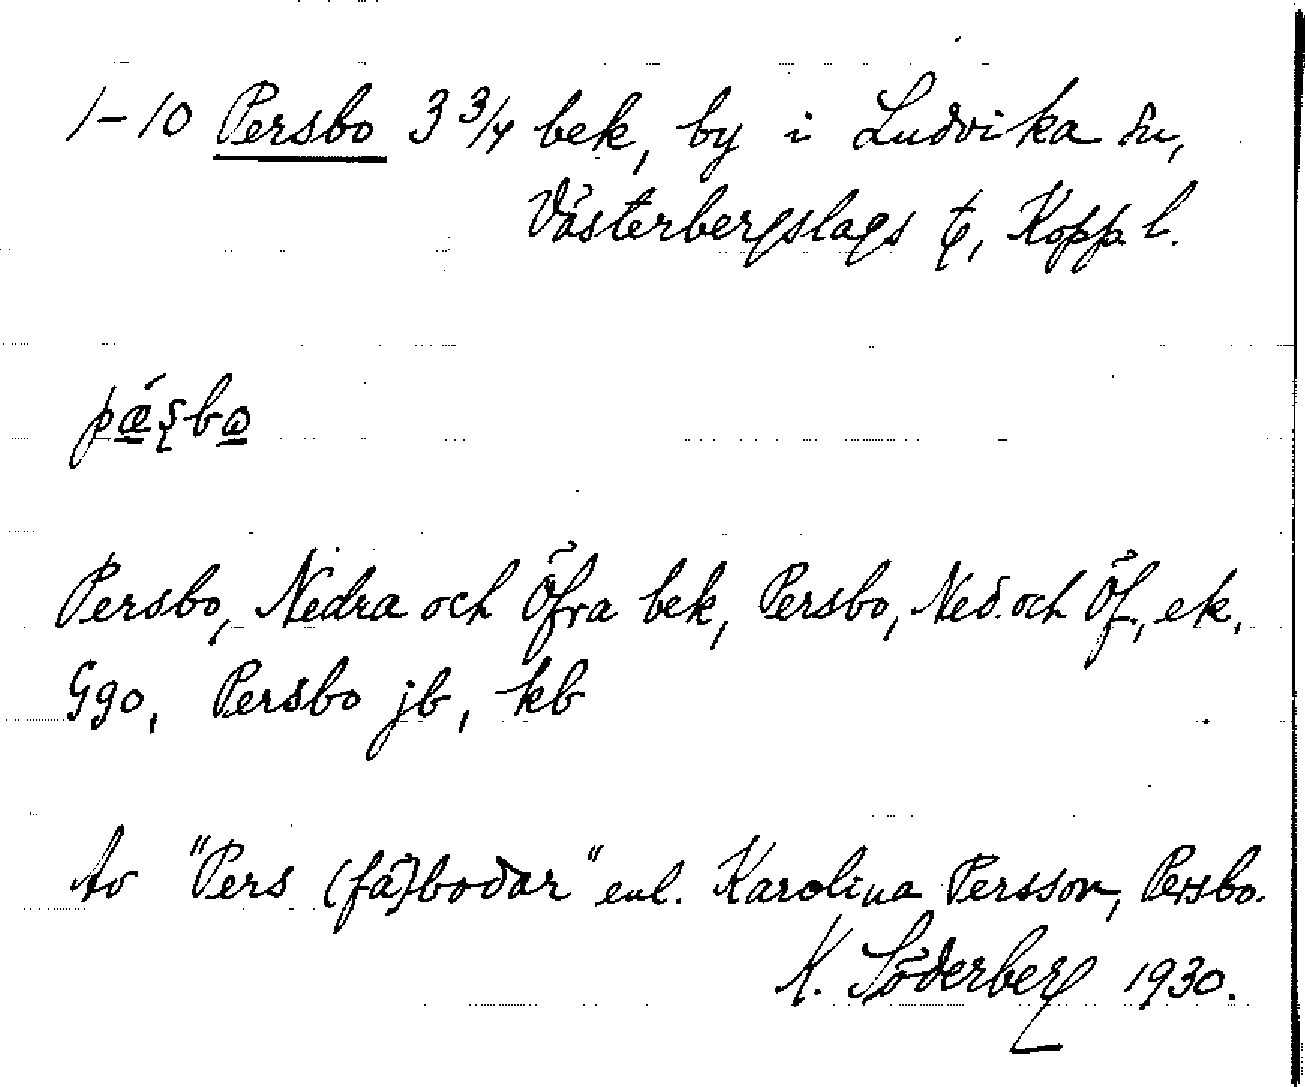 1-10 Persbo 3 3/4 bek, by i Ludvika sn,
Västerbergslags t, Kopp. l.
pǽʂbo
Persbo, Nedra och Öfra bek, Persbo, Ned. och Öf., ek.
Ggo, Persbo jb, kb
Av "Pers (fä)bodar" enl. Karolina Persson, Persbo.
K. Söderberg 1930.